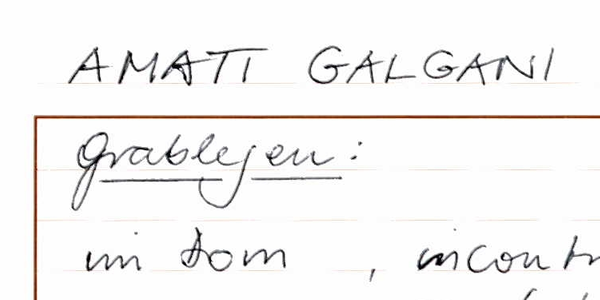 AMATI GALGANI
Grablejen:
im Dom , incont